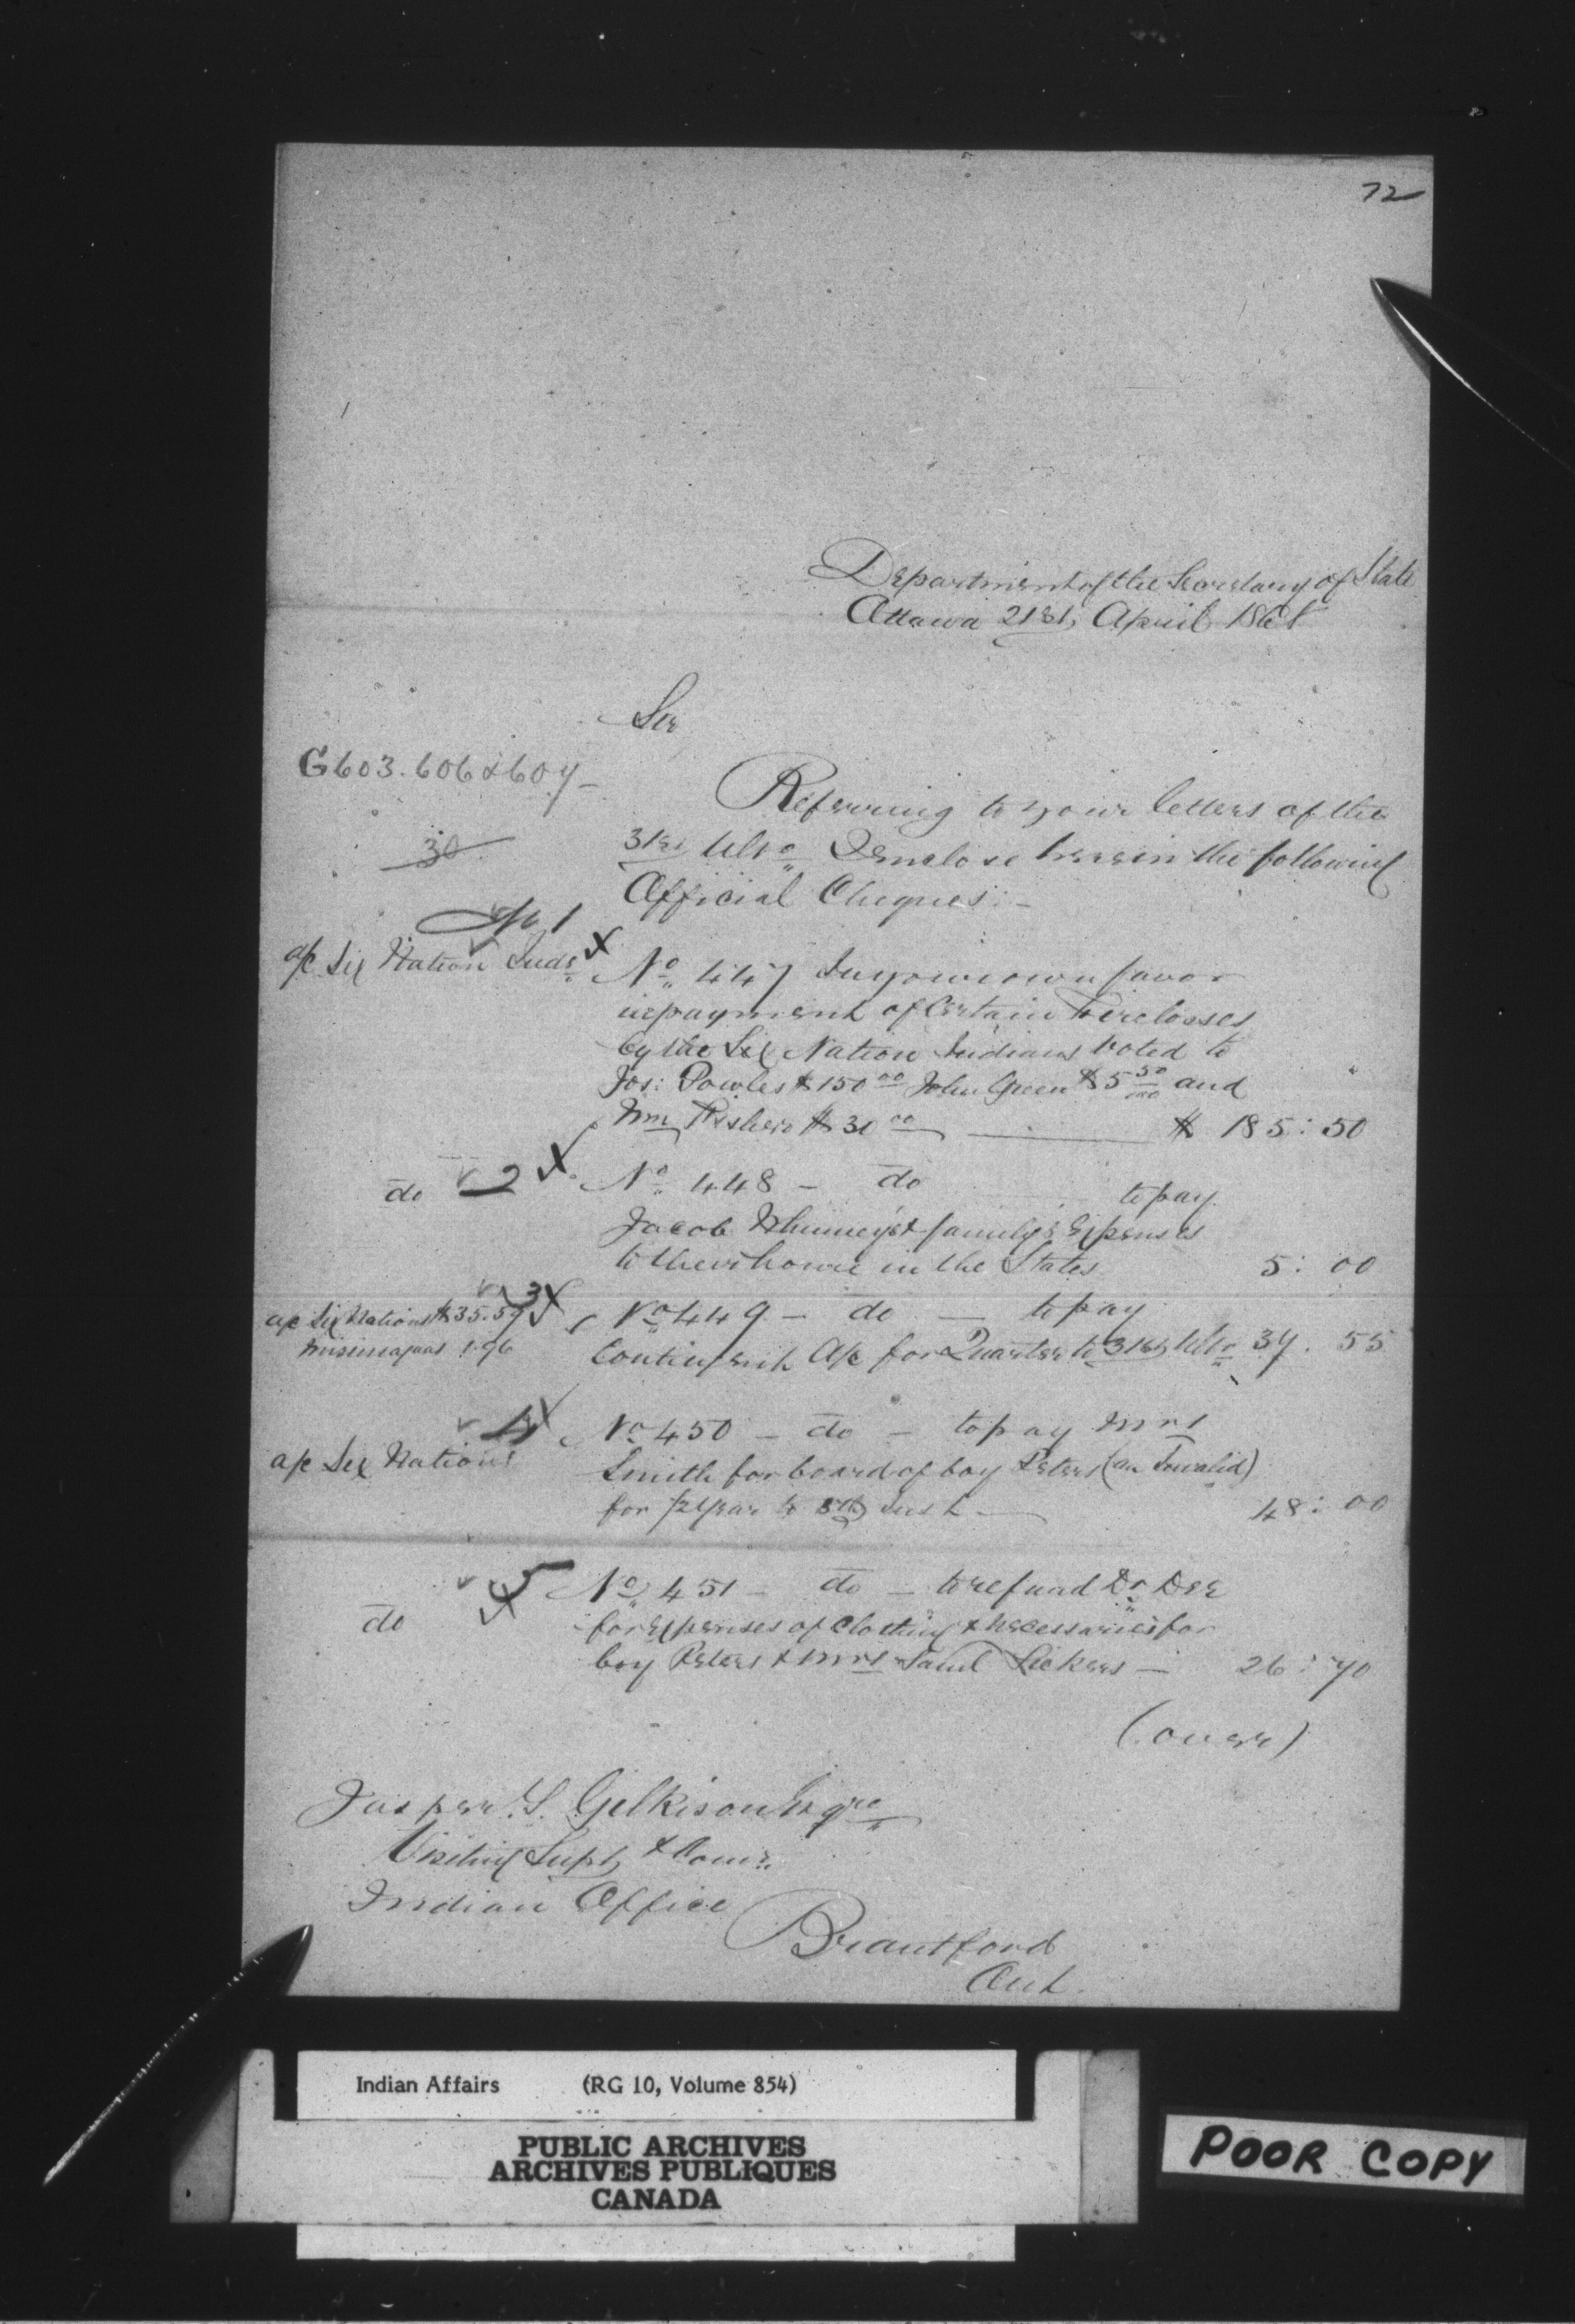 72
Department of the Secretary of State
Ottawa 21st, April 1868
Sir
G 603. 606 & 607
Referring to your letters of the
30
31st Ulto I enclose herein the following
Official Cheques: -
No 1
a/c Six Nation Inds
No 447 In your own favor
in payment of certain Fire losses
by the Six Nation Indians voted to
Jos: Powles $150 00 John Green $5 50/100 and
Wm Fisher $30 00 $ 185: 50
do 2 No 448 - do to pay
Jacob & family's Expenses
to their home in the States 5: 00
3
a/c Six Nations $35.59 No 449 - do - to pay
Missisaguas 1.96 Contingent A/c for Quarter to 31st, Ulto 37. 55
4 No 450 - do - to pay Mrs
a/c Six Nations Smith for board of boy Peters (an Invalid)
for 1/2 year to 5th Inst - 48: 00
5 No 451 - do - to refund Dr Dee
do for Expenses of Clothing & necessaries for
boy Peters & Mrs Saml Sickers - 26: 70
(over)
Jasper T. Gilkison Esqre
Visiting Supt, & Comr.
Indian Office
Brantford
Ont.
Indian Affairs (RG 10, Volume 854)
PUBLIC ARCHIVES
ARCHIVES PUBLIQUES
CANADA
POOR COPY